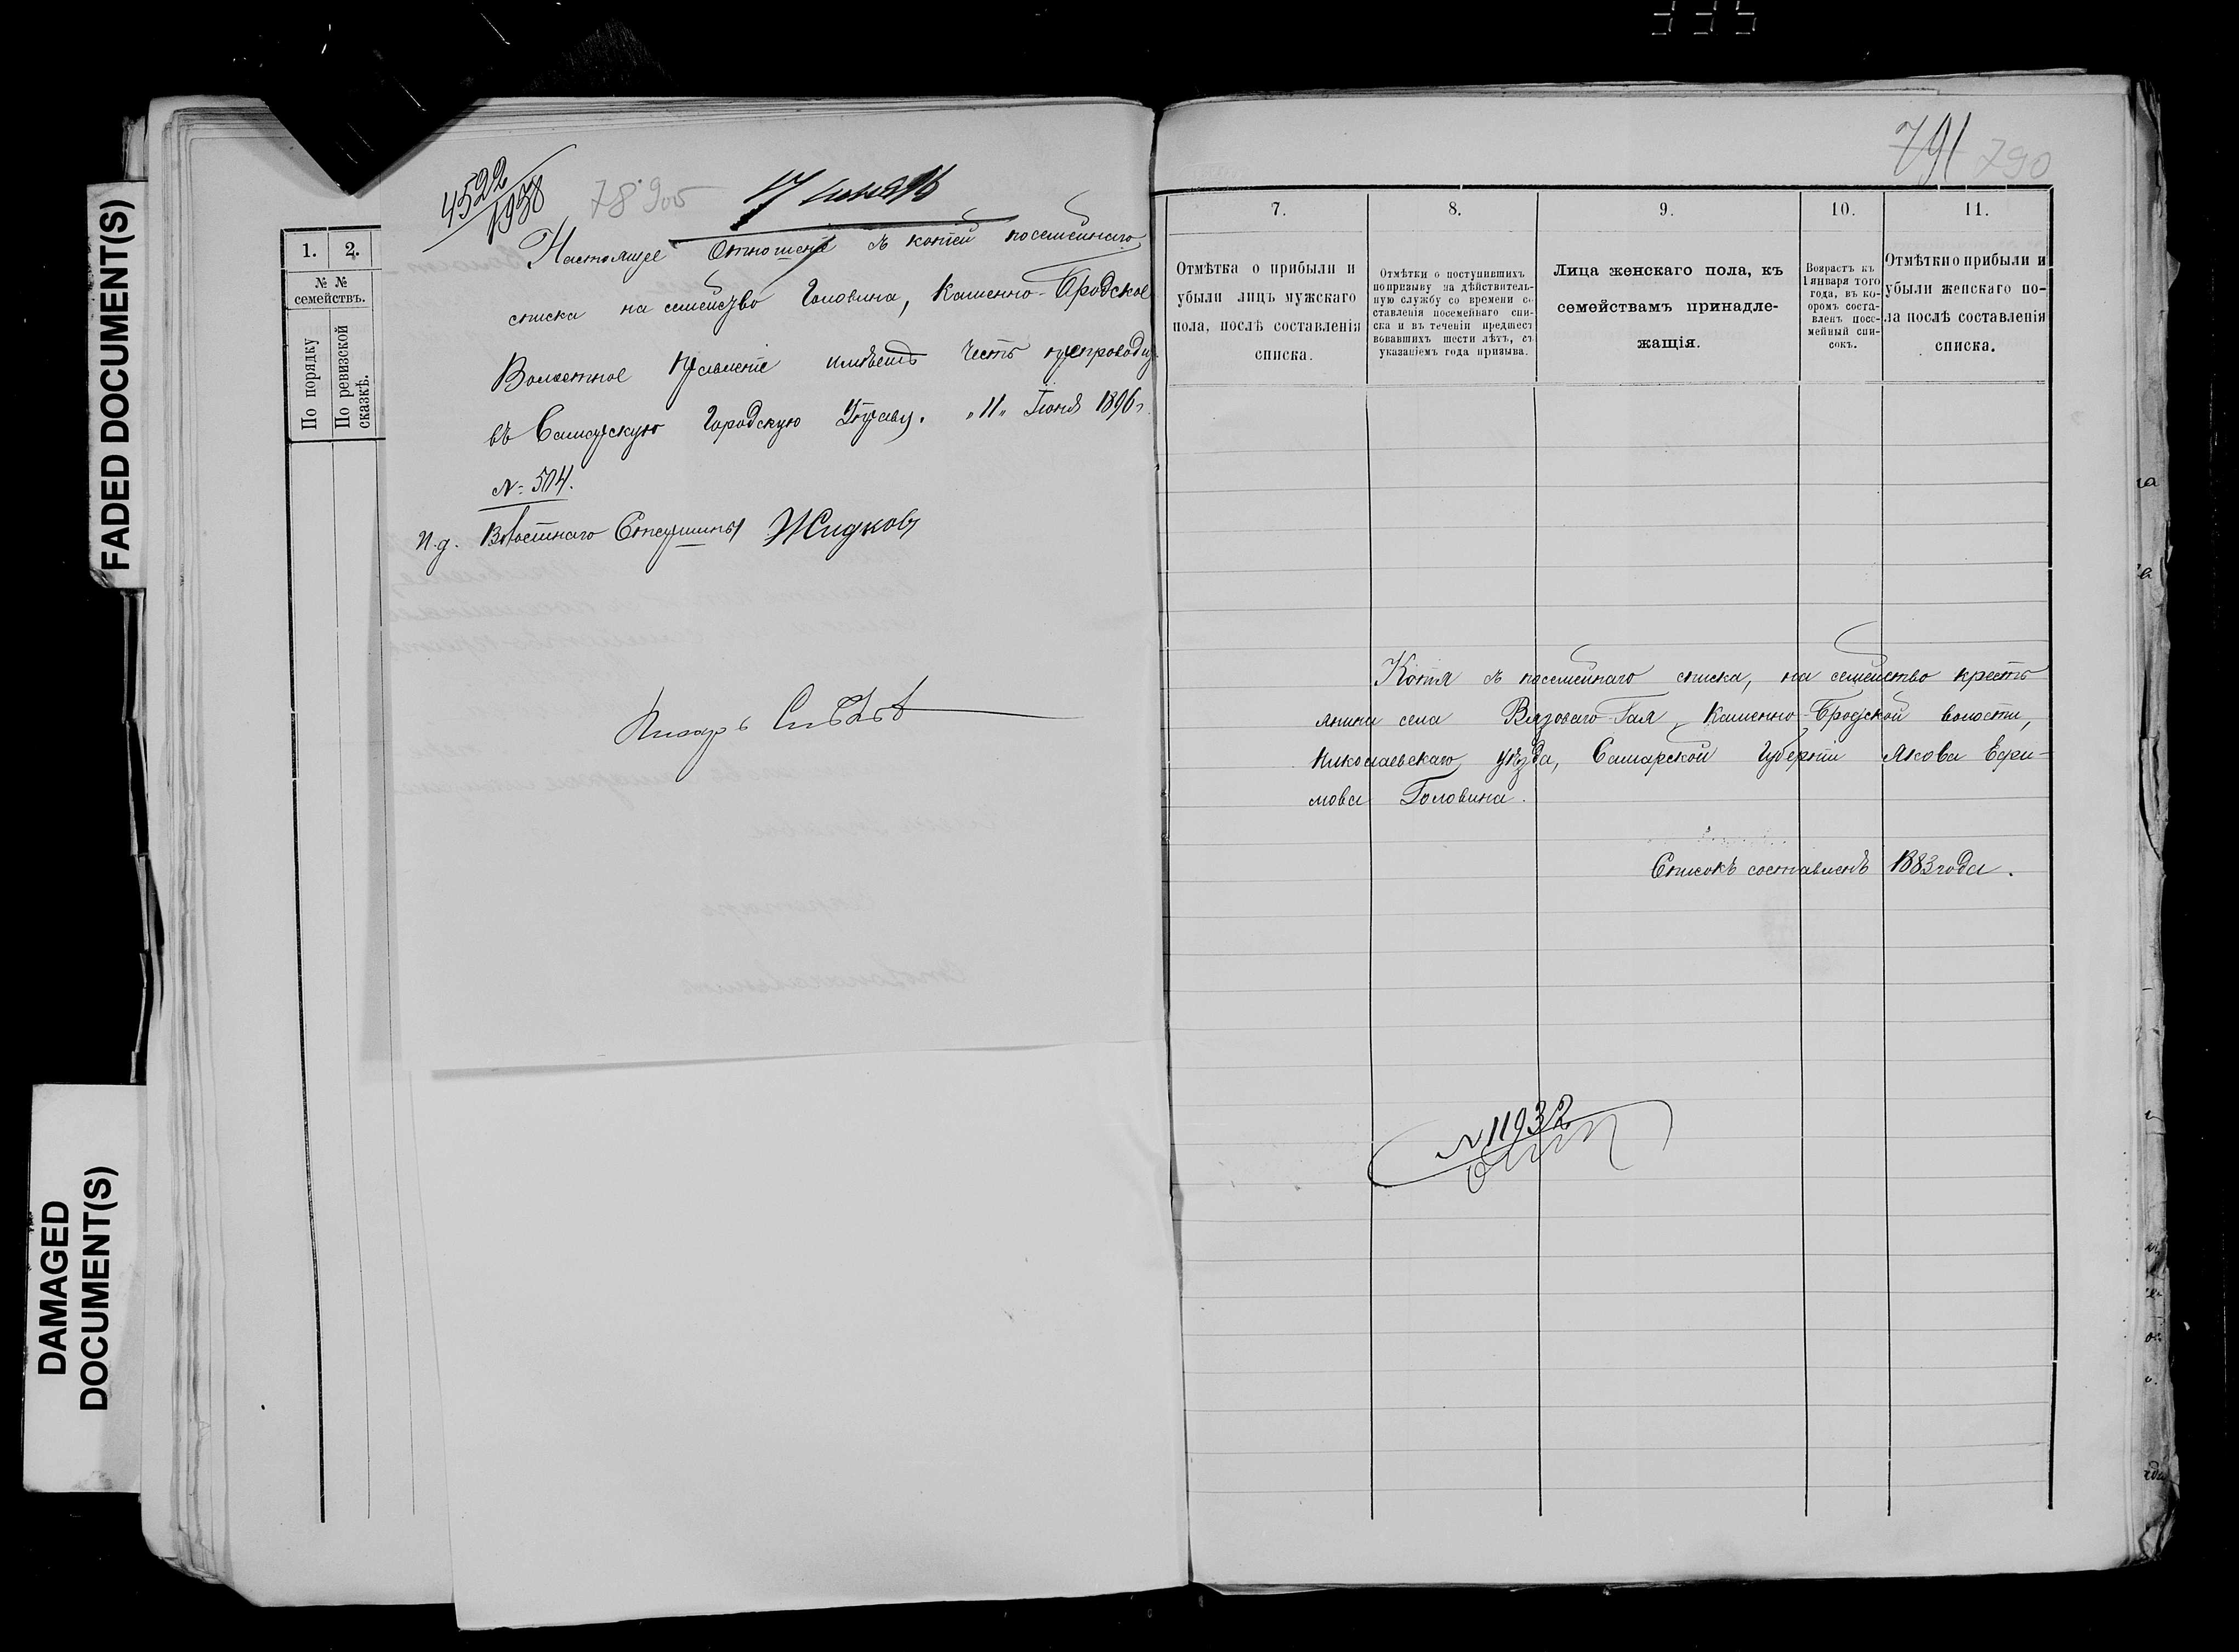 FADED DOCUMENT(S)
DAMAGED
DOCUMENT(S)
1. 2.
№ №
семействъ.
По порядку
По ревизской
сказкѣ.
4522
1938
78 905
17 іюня 96
Настоящее Отношеніе съ копіей посемейнаго
списка на семейство Головина, Каменно-Бродское
Волостное Правленіе имѣетъ честь препроводить
въ Самарскую Городскую Управу. „11„ Іюня 1896 г.
№ 504.
И.д. Волостнаго Старшины Жидковъ
Писарь
791 790
7. 8. 9. 10. 11.
Отмѣтка о прибыли и
убыли лицъ мужскаго
пола, послѣ составленія
списка.
Отмѣтки о поступившихъ
по призыву на дѣйствитель-
ную службу со времени со
ставленія посемейнаго спи-
ска и въ теченіи предшест
вовавшихъ шести лѣтъ, съ
указаніемъ года призыва.
Лица женскаго пола, къ
семействамъ принадле-
жащія.
Возрастъ къ
1 января того
года, въ ко-
оромъ соста-
вленъ посе-
мейный спи-
сокъ.
Отмѣтки о прибыли и
убыли женскаго по-
ла послѣ составленія
списка.
Копія съ посемейнаго списка, на семейство кресть
янина села Вязоваго-Гая, Каменно-Бродской волости,
Николаевскаго уѣзда, Самарской Губерніи Якова Ефи-
мова Головина.
Списокъ составленъ 1883 года.
№ 11932